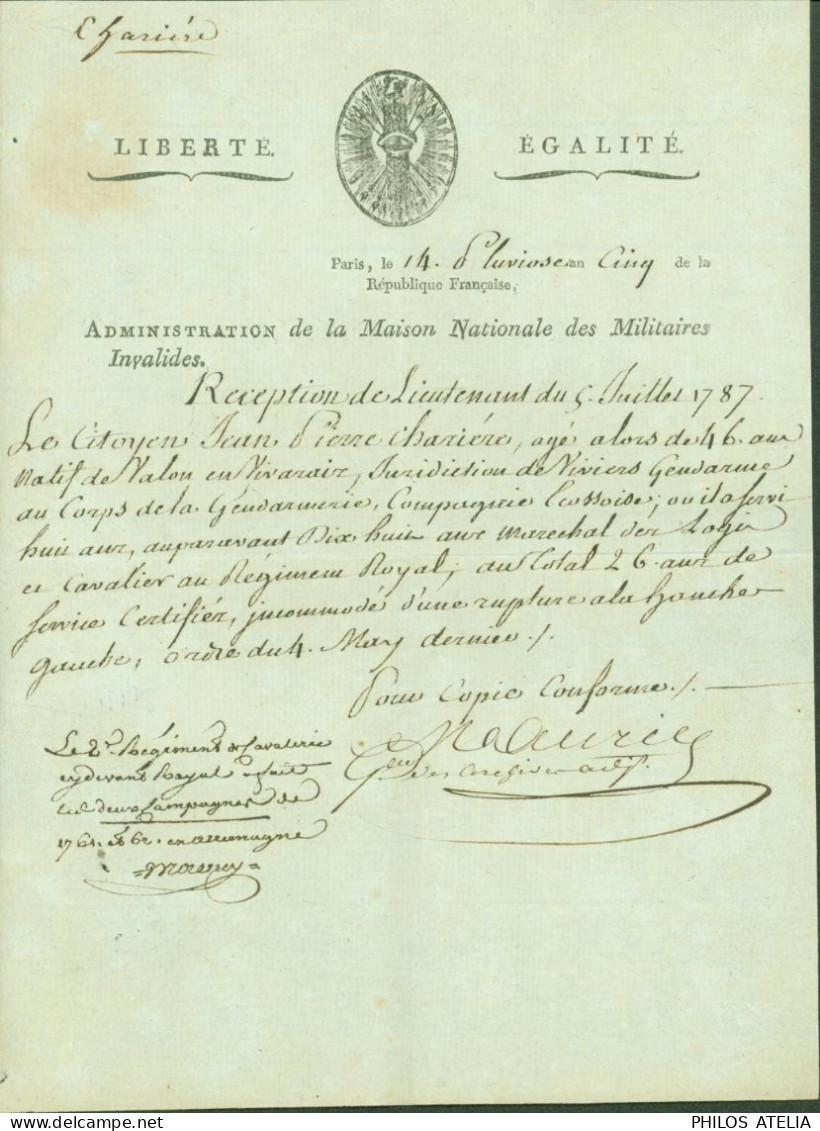 Chariére
LIBERTÉ. ÉGALITÉ.
Paris, le 14. Pluviose an Cinq de la
République Française,
ADMINISTRATION de la Maison Nationale des Militaires
Invalides.
Reception de Lieutenant du 5. Juillet 1787.
Le Citoyen Jean Pierre Chariére, agé alors de 46. ans
Natif de Valon en Vivarais, Juridiction de Viviers Gendarme
au Corps de la Gendarmerie, Compagnie Ecossoise; ou il a servi
huit ans, auparavant Dix huit ans Marechal des Logis
et Cavalier au Régiment Royal; au Total 26. ans de
Service Certifiés, incommodé d'une rupture a la hanche
gauche, ordre du 4. May dernier ./.
Pour Copie Conforme ./.
Le 2e. Regiment de Cavalerie
cydevant Royal a fait
les deux Campagnes de
1761. et 62. en allemagne
PHILOS ATELIA